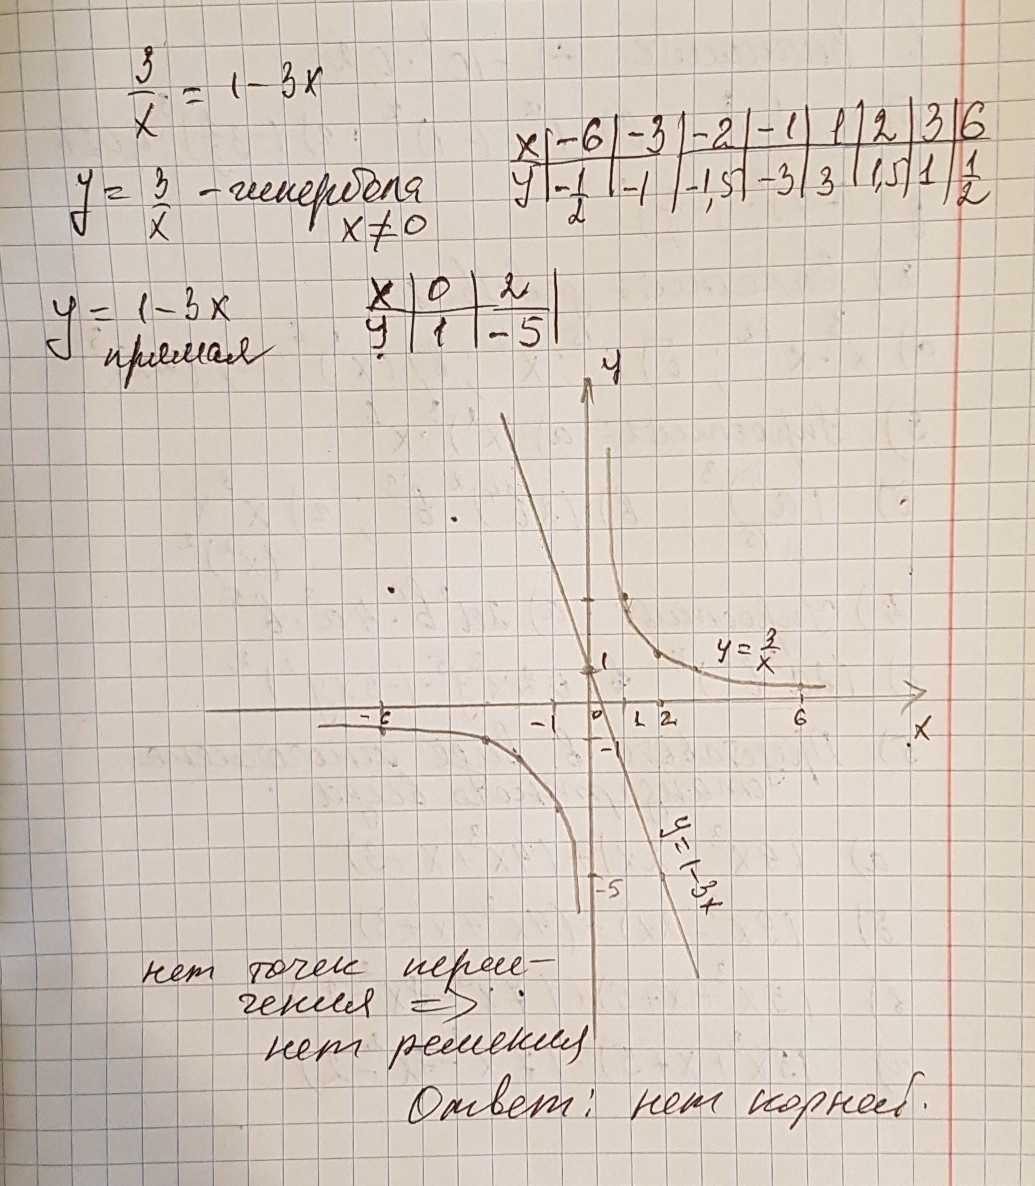 3/x = 1-3x
y = 3/x - гипербола
x ≠ 0
x | -6 | -3 | -2 | -1 | 1 | 2 | 3 | 6
y | -1/2 | -1 | -1,5 | -3 | 3 | 1,5 | 1 | 1/2
y = 1-3x
прямая
x | 0 | 2
y | 1 | -5
y
1
y = 3/x
-6 -1 0 1 2 6
x
-1
y=1-3x
-5
нет точек пересе-
чения =>
нет решения
Ответ: нет корней.